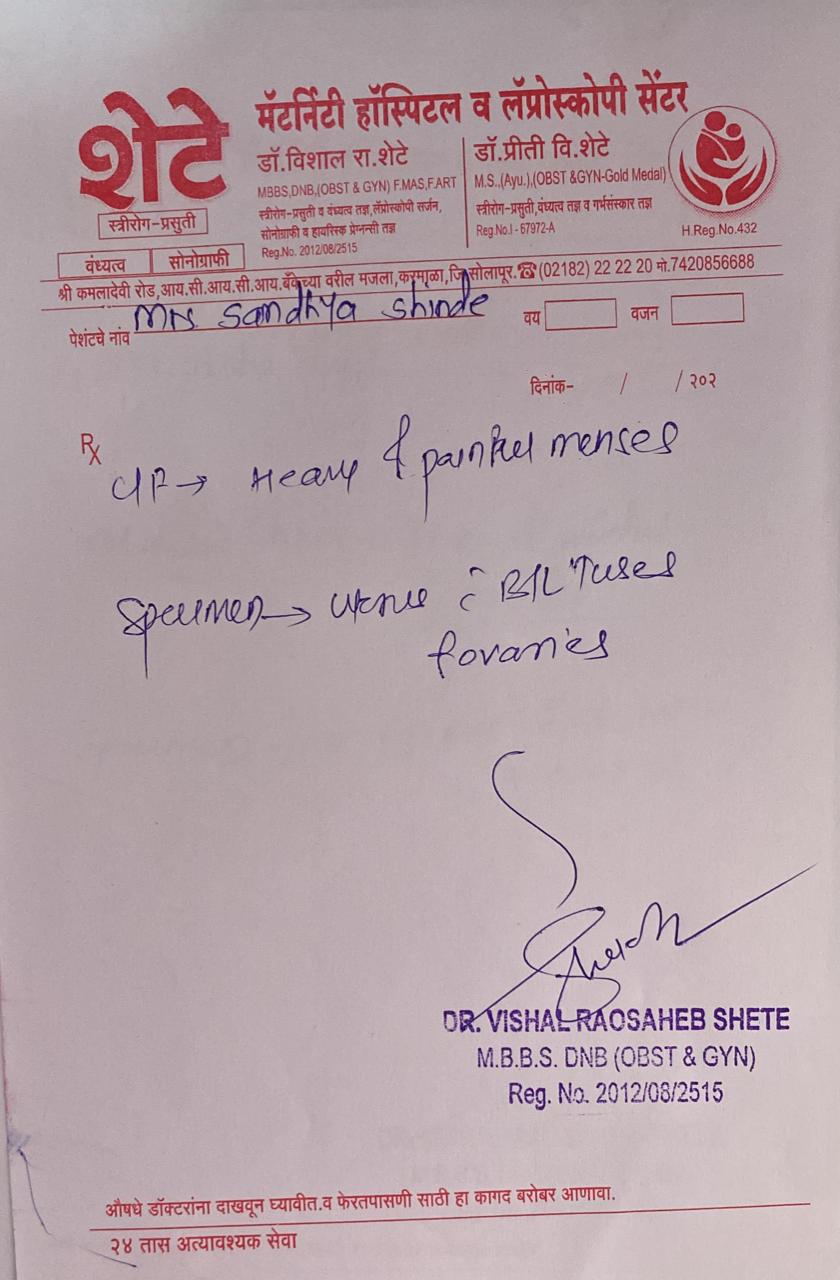 शेटे
स्त्रीरोग-प्रसुती
वंध्यत्व सोनोग्राफी
मॅटर्निटी हॉस्पिटल व लॅप्रोस्कोपी सेंटर
डॉ.विशाल रा.शेटे
MBBS,DNB,(OBST & GYN) F.MAS,F.ART
स्त्रीरोग-प्रसुती व वंध्यत्व तज्ञ,लॅप्रोस्कोपी सर्जन,
सोनोग्राफी व हायरिस्क प्रेग्नन्सी तज्ञ
Reg.No. 2012/08/2515
डॉ.प्रीती वि.शेटे
M.S.,(Ayu.),(OBST &GYN-Gold Medal)
स्त्रीरोग-प्रसुती,वंध्यत्व तज्ञ व गर्भसंस्कार तज्ञ
Reg.No.I - 67972-A
H.Reg.No.432
श्री कमलादेवी रोड,आय.सी.आय.सी.आय.बँकेच्या वरील मजला,करमाळा,जि.सोलापूर.☎(02182) 22 22 20 मो.7420856688
पेशंटचे नांव Mrs. Sandhya Shinde वय वजन
दिनांक- / / २०२
Rx
C/F → Heavy & painful menses
Specimen → uterus c̄ B/L Tubes
& ovaries
DR. VISHAL RAOSAHEB SHETE
M.B.B.S. DNB (OBST & GYN)
Reg. No. 2012/08/2515
औषधे डॉक्टरांना दाखवून घ्यावीत.व फेरतपासणी साठी हा कागद बरोबर आणावा.
२४ तास अत्यावश्यक सेवा